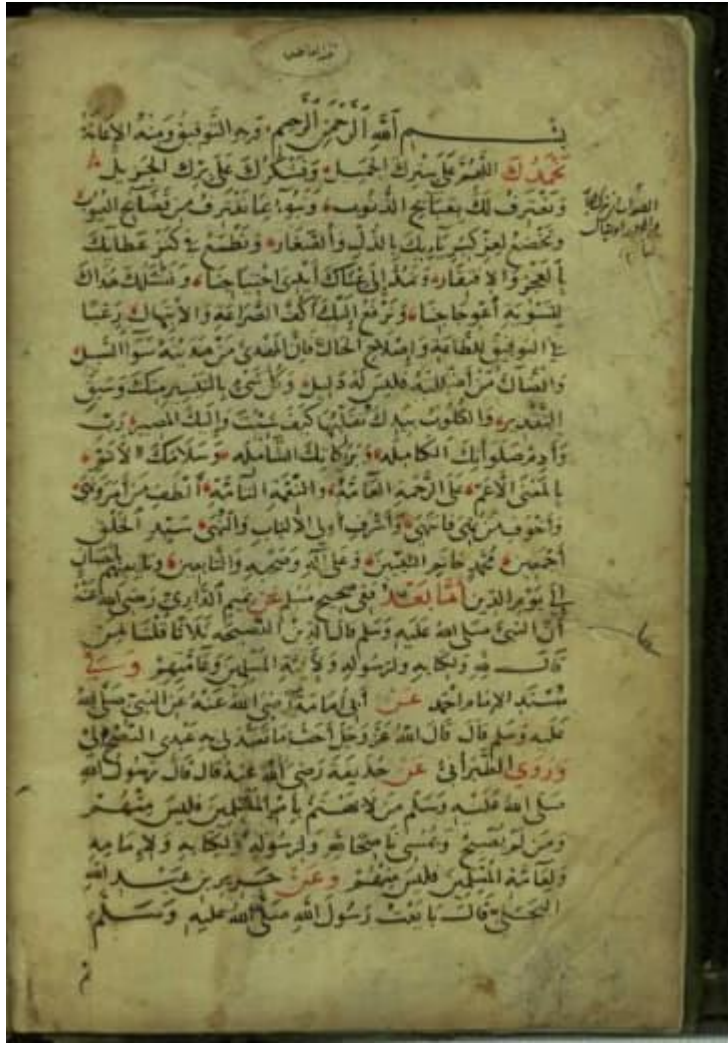 بسم الله الرحمن الرحيم وبه التوفيق ومنه الإعانة
نحمدك اللهم على سترك الجميل ونشكرك على برك الجزيل
ونعترف لك بقبايح الذنوب ونبوء بما نقترف من فضايح العيوب
ونخضع لعز كبريايك بالذل والصغار ونطمع في كنز عطايك
بالعجز والافتقار ونمد إلى غناك أيدي احتياجنا ونسئلك هداك
لتسوية اعوجاجنا ونرفع إليك أكف الضراعة والابتهال رغبا
في التوفيق للطاعة وإصلاح الحال فإن المهدي من هديته سواء السبيل
والضال من أضللته فليس له دليل وكل شيء بالتيسير منك وسبق
التقدير والقلوب بيدك تقلبها كيف شئت وإليك المصير رب
وأدم صلواتك الكامله وبركاتك الشامله وسلامك الأتم
بالمعنى الأعم على الرحمة العامة والنعمة التامة ألطف من أمر ونهى
وأخوف من نهي فانتهى وأشرف أولي الألباب والنهى سيد الخلق
أجمعين محمد خاتم النبيين وعلى آله وصحبه والتابعين وتابعيهم بإحسان
إلى يوم الدين أما بعد ففي صحيح مسلم عن تميم الداري رضي الله عنه
أن النبي صلى الله عليه وسلم قال الدين النصيحة ثلاثا قلنا لمن
قال لله ولكتابه ولرسوله ولأئمة المسلمين وعامتهم وفي
مسند الإمام أحمد عن أبي أمامة رضي الله عنه عن النبي صلى الله
عليه وسلم قال قال الله عز وجل أحب ما تعبد لي به عبدي النصح لي
وروى الطبراني عن حذيفة رضي الله عنه قال قال رسول الله
صلى الله عليه وسلم من لا يهتم بأمر المسلمين فليس منهم
ومن لم يصبح ويمسي ناصحا لله ولرسوله ولكتابه ولإمامه
ولعامة المسلمين فليس منهم وعن جرير بن عبد الله
البجلي قال بايعت رسول الله صلى الله عليه وسلم